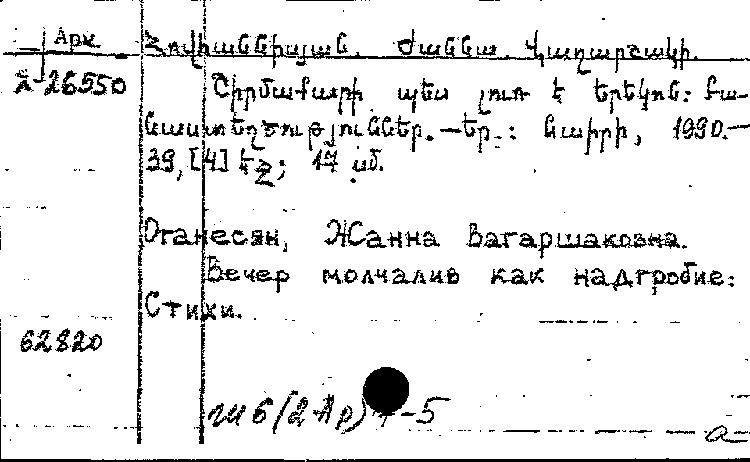 Арк
Հովհաննիսյան. Ժաննա Վաղարշակի.
ձ-26550
Շիրմաքարի պես լուռ է երեկոն: Բա-
նաստեղծություններ. — Եր.: Նաիրի, 1990.—
39, [4] էջ; 17 սմ.
Оганесян, Жанна Вагаршаковна.
Вечер молчалив как надгробие:
Стихи.
62820
ш6(2-Ар) -5
a